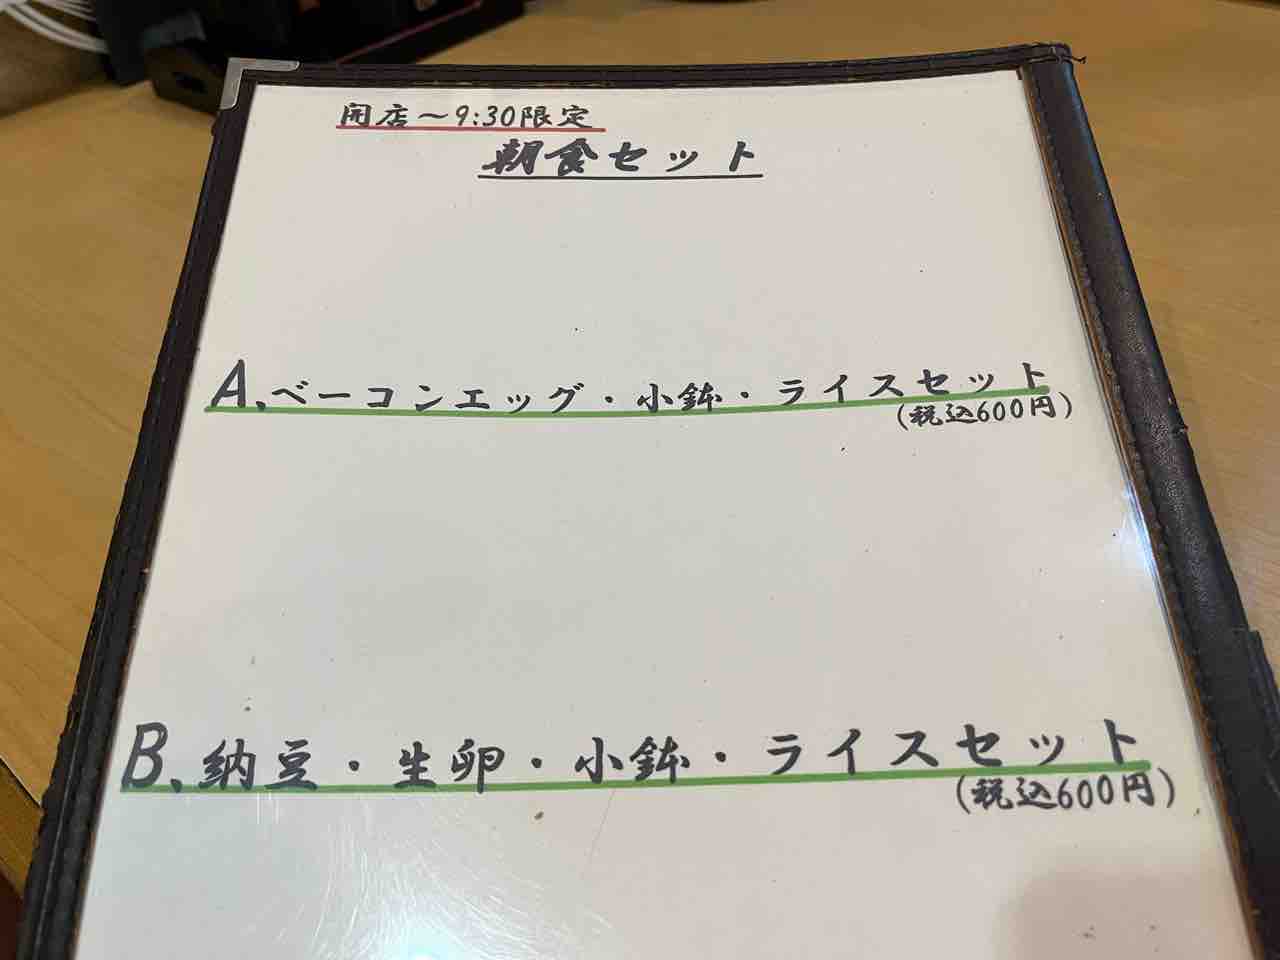 開店～9:30限定
朝食セット
A.ベーコンエッグ・小鉢・ライスセット
(税込600円)
B.納豆・生卵・小鉢・ライスセット
(税込600円)